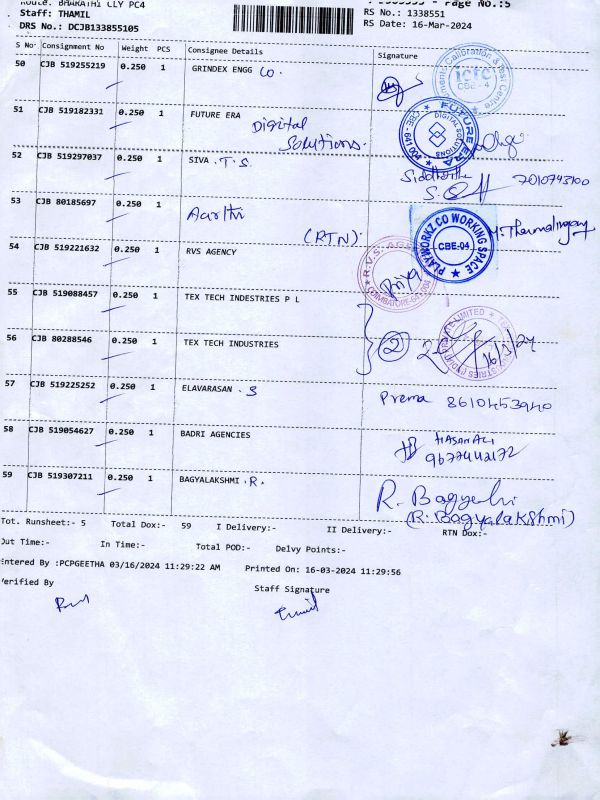 Route. BHARATHI CLY PC4
Page No.:5
Staff: THAMIL
RS No.: 1338551
DRS No.: DCJB133855105
RS Date: 16-Mar-2024
S No Consignment No Weight PCS Consignee Details Signature
50 CJB 519255219 0.250 1 GRINDEX ENGG CO.
CBE - 4
51 CJB 519182331 0.250 1 FUTURE ERA Digital Solutions.
FUTURE ERA DIGITAL SOLUTIONS
52 CJB 519297037 0.250 1 SIVA . T. S.
7010743100
53 CJB 80185697 0.250 1 Aarthi (RTN)
PLAYWORKZ CO WORKING SPACE CBE-04
54 CJB 519221632 0.250 1 RVS AGENCY
Priya
55 CJB 519088457 0.250 1 TEX TECH INDESTRIES P L
56 CJB 80288546 0.250 1 TEX TECH INDUSTRIES
2 16/3/24
57 CJB 519225252 0.250 1 ELAVARASAN . S
Prema 8610453940
58 CJB 519054627 0.250 1 BADRI AGENCIES
HASAN ALI
9677442172
59 CJB 519307211 0.250 1 BAGYALAKSHMI .R.
(R. Bagyalakshmi)
Tot. Runsheet:- 5 Total Dox:- 59 I Delivery:- II Delivery:- RTN Dox:-
Out Time:- In Time:- Total POD:- Delvy Points:-
intered By :PCPGEETHA 03/16/2024 11:29:22 AM Printed On: 16-03-2024 11:29:56
Verified By Staff Signature